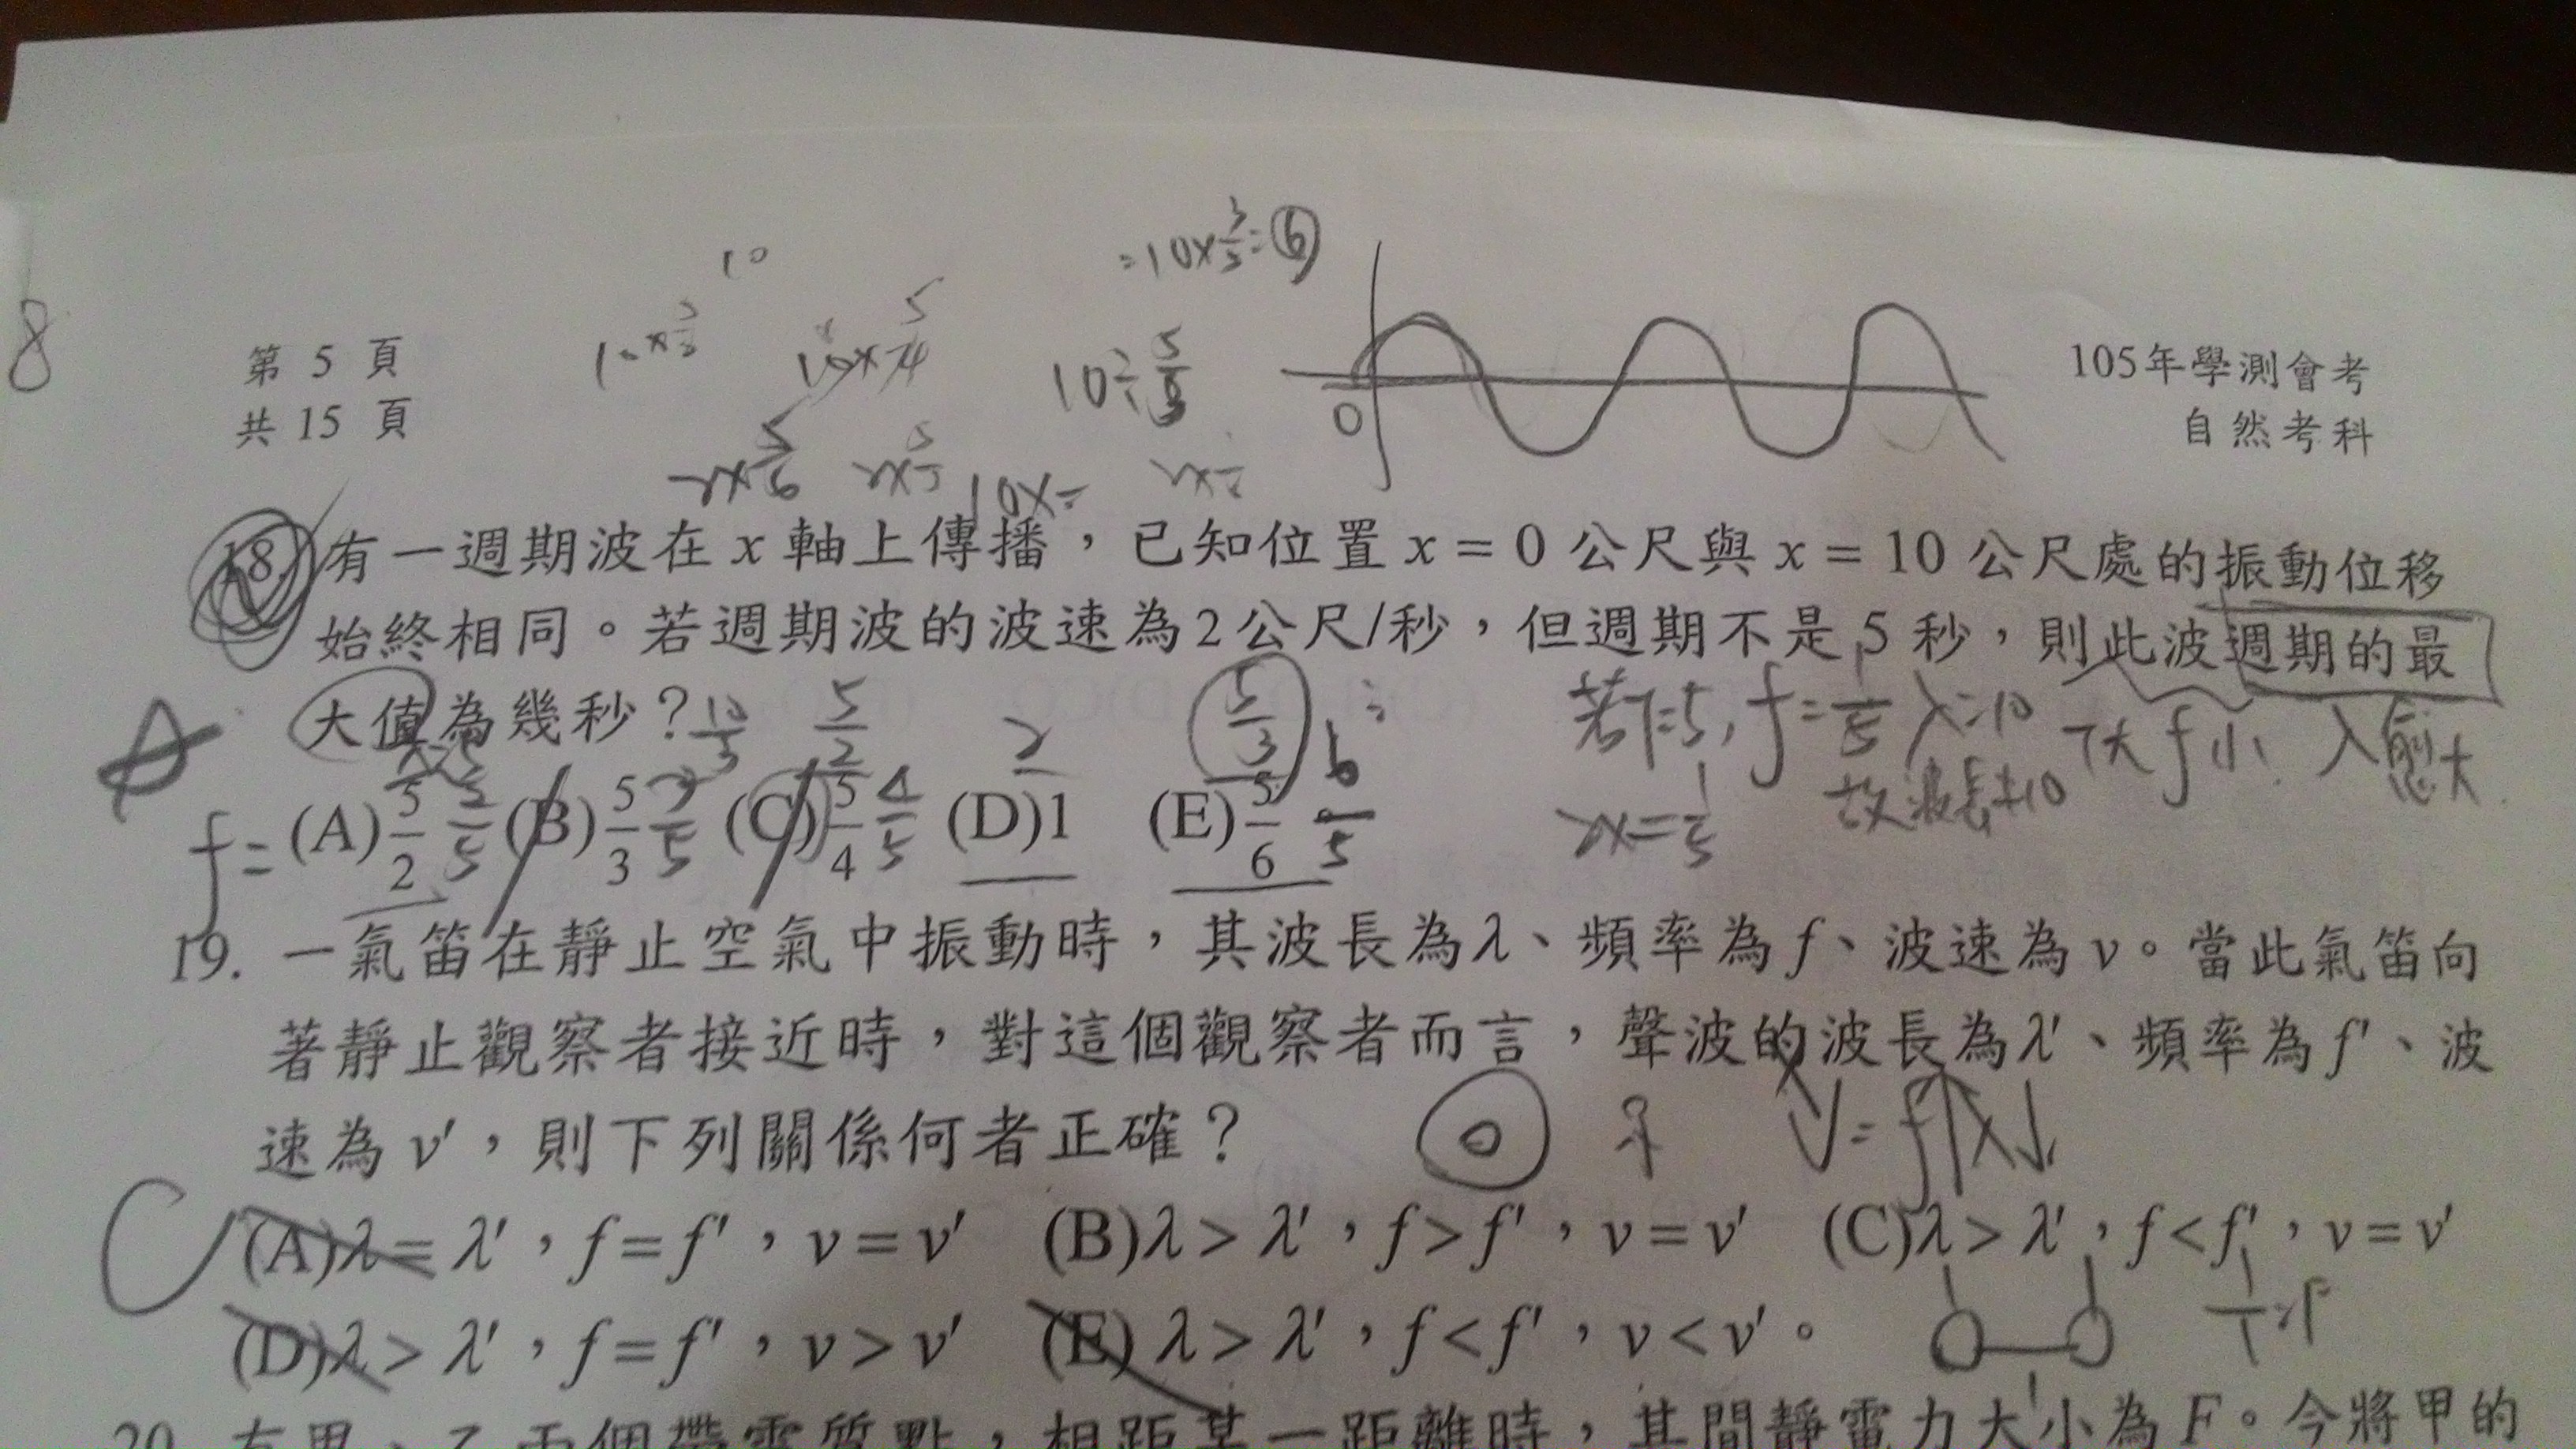 10
=10×3/5=⑥
8
第 5 頁
共 15 頁
105年學測會考
自然考科
10÷5/3
0
10×=
18. 有一週期波在 x 軸上傳播，已知位置 x = 0 公尺與 x = 10 公尺處的振動位移
始終相同。若週期波的波速為2公尺/秒，但週期不是 5 秒，則此波週期的最
大值為幾秒？
10/3 5/2 2 5/3
若T=5, f=1/5 λ=10
T大 f小 λ愈大
故波長≠10
A
f= (A)5/2 2/5 (B)5/3 3/5 (C)5/4 4/5 (D)1 (E)5/6 6/5
19. 一氣笛在靜止空氣中振動時，其波長為λ、頻率為 f、波速為 v。當此氣笛向
著靜止觀察者接近時，對這個觀察者而言，聲波的波長為λ′、頻率為 f′、波
速為 v′，則下列關係何者正確？
V=f↑λ↓
C
(A)λ = λ′，f = f′，v = v′ (B)λ > λ′，f > f′，v = v′ (C)λ > λ′，f < f′，v = v′
(D)λ > λ′，f = f′，v > v′ (E) λ > λ′，f < f′，v < v′。
1/T=f
20. 有甲、乙兩個帶電質點，相距某一距離時，其間靜電力大小為 F。今將甲的